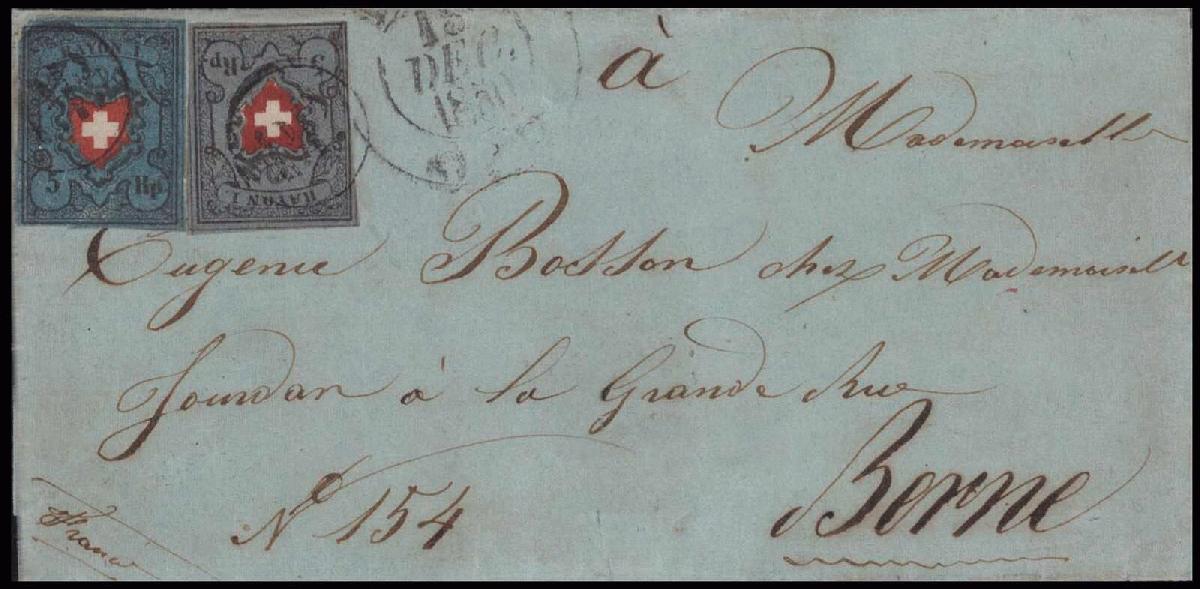 RAYON I
5 Rp
RAYON I
5 Rp
13
DEC.
1850
à
Mademoiselle
Eugenie Bosson chez Mademoiselle
Jourdan à la Grande Rue
Berne
N° 154
Franco